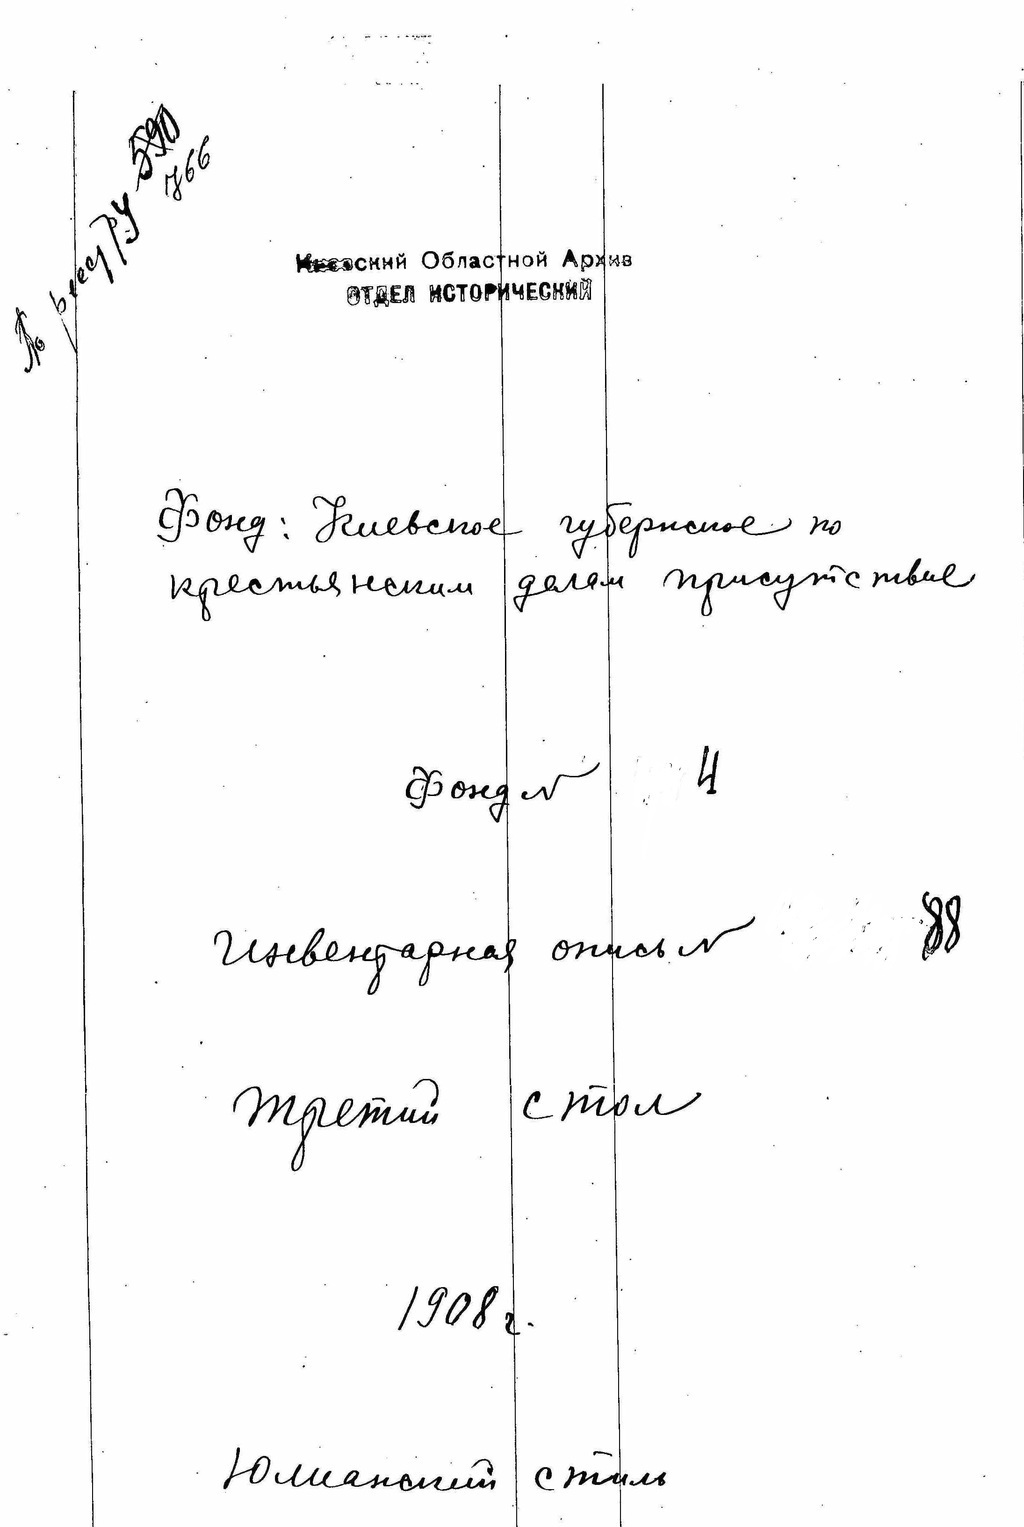 № реестру 590
766
Киевский Областной Архив
ОТДЕЛ ИСТОРИЧЕСКИЙ
Фонд: Киевское губернское по
крестьянским делам присутствие
Фонд N 4
Инвентарная опись N 88
Третий стол
1908 г.
Юлианский стиль